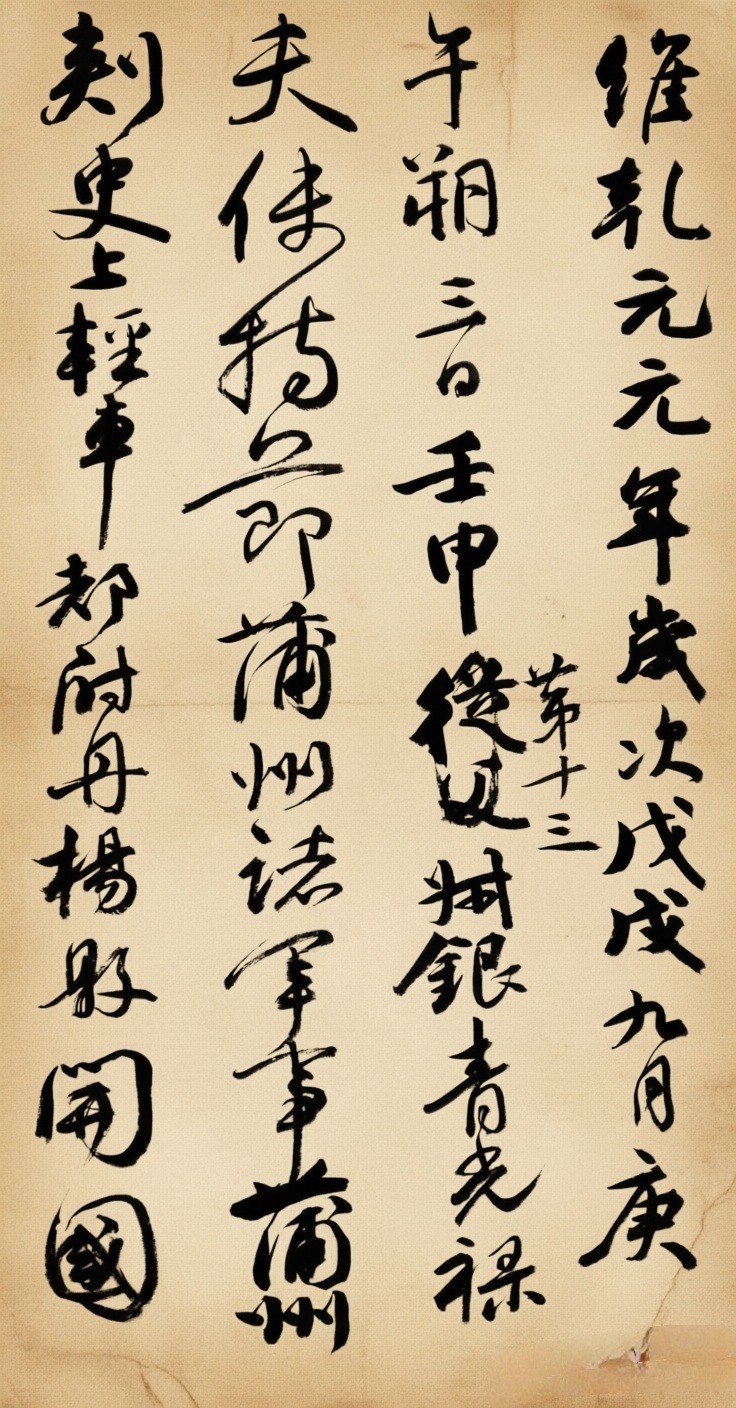 維乾元元年歲次戊戌九月庚
午朔三日壬申
第十三
從父銀青光祿
夫使持節蒲州諸軍事蒲州
刺史上輕車都尉丹楊縣開國